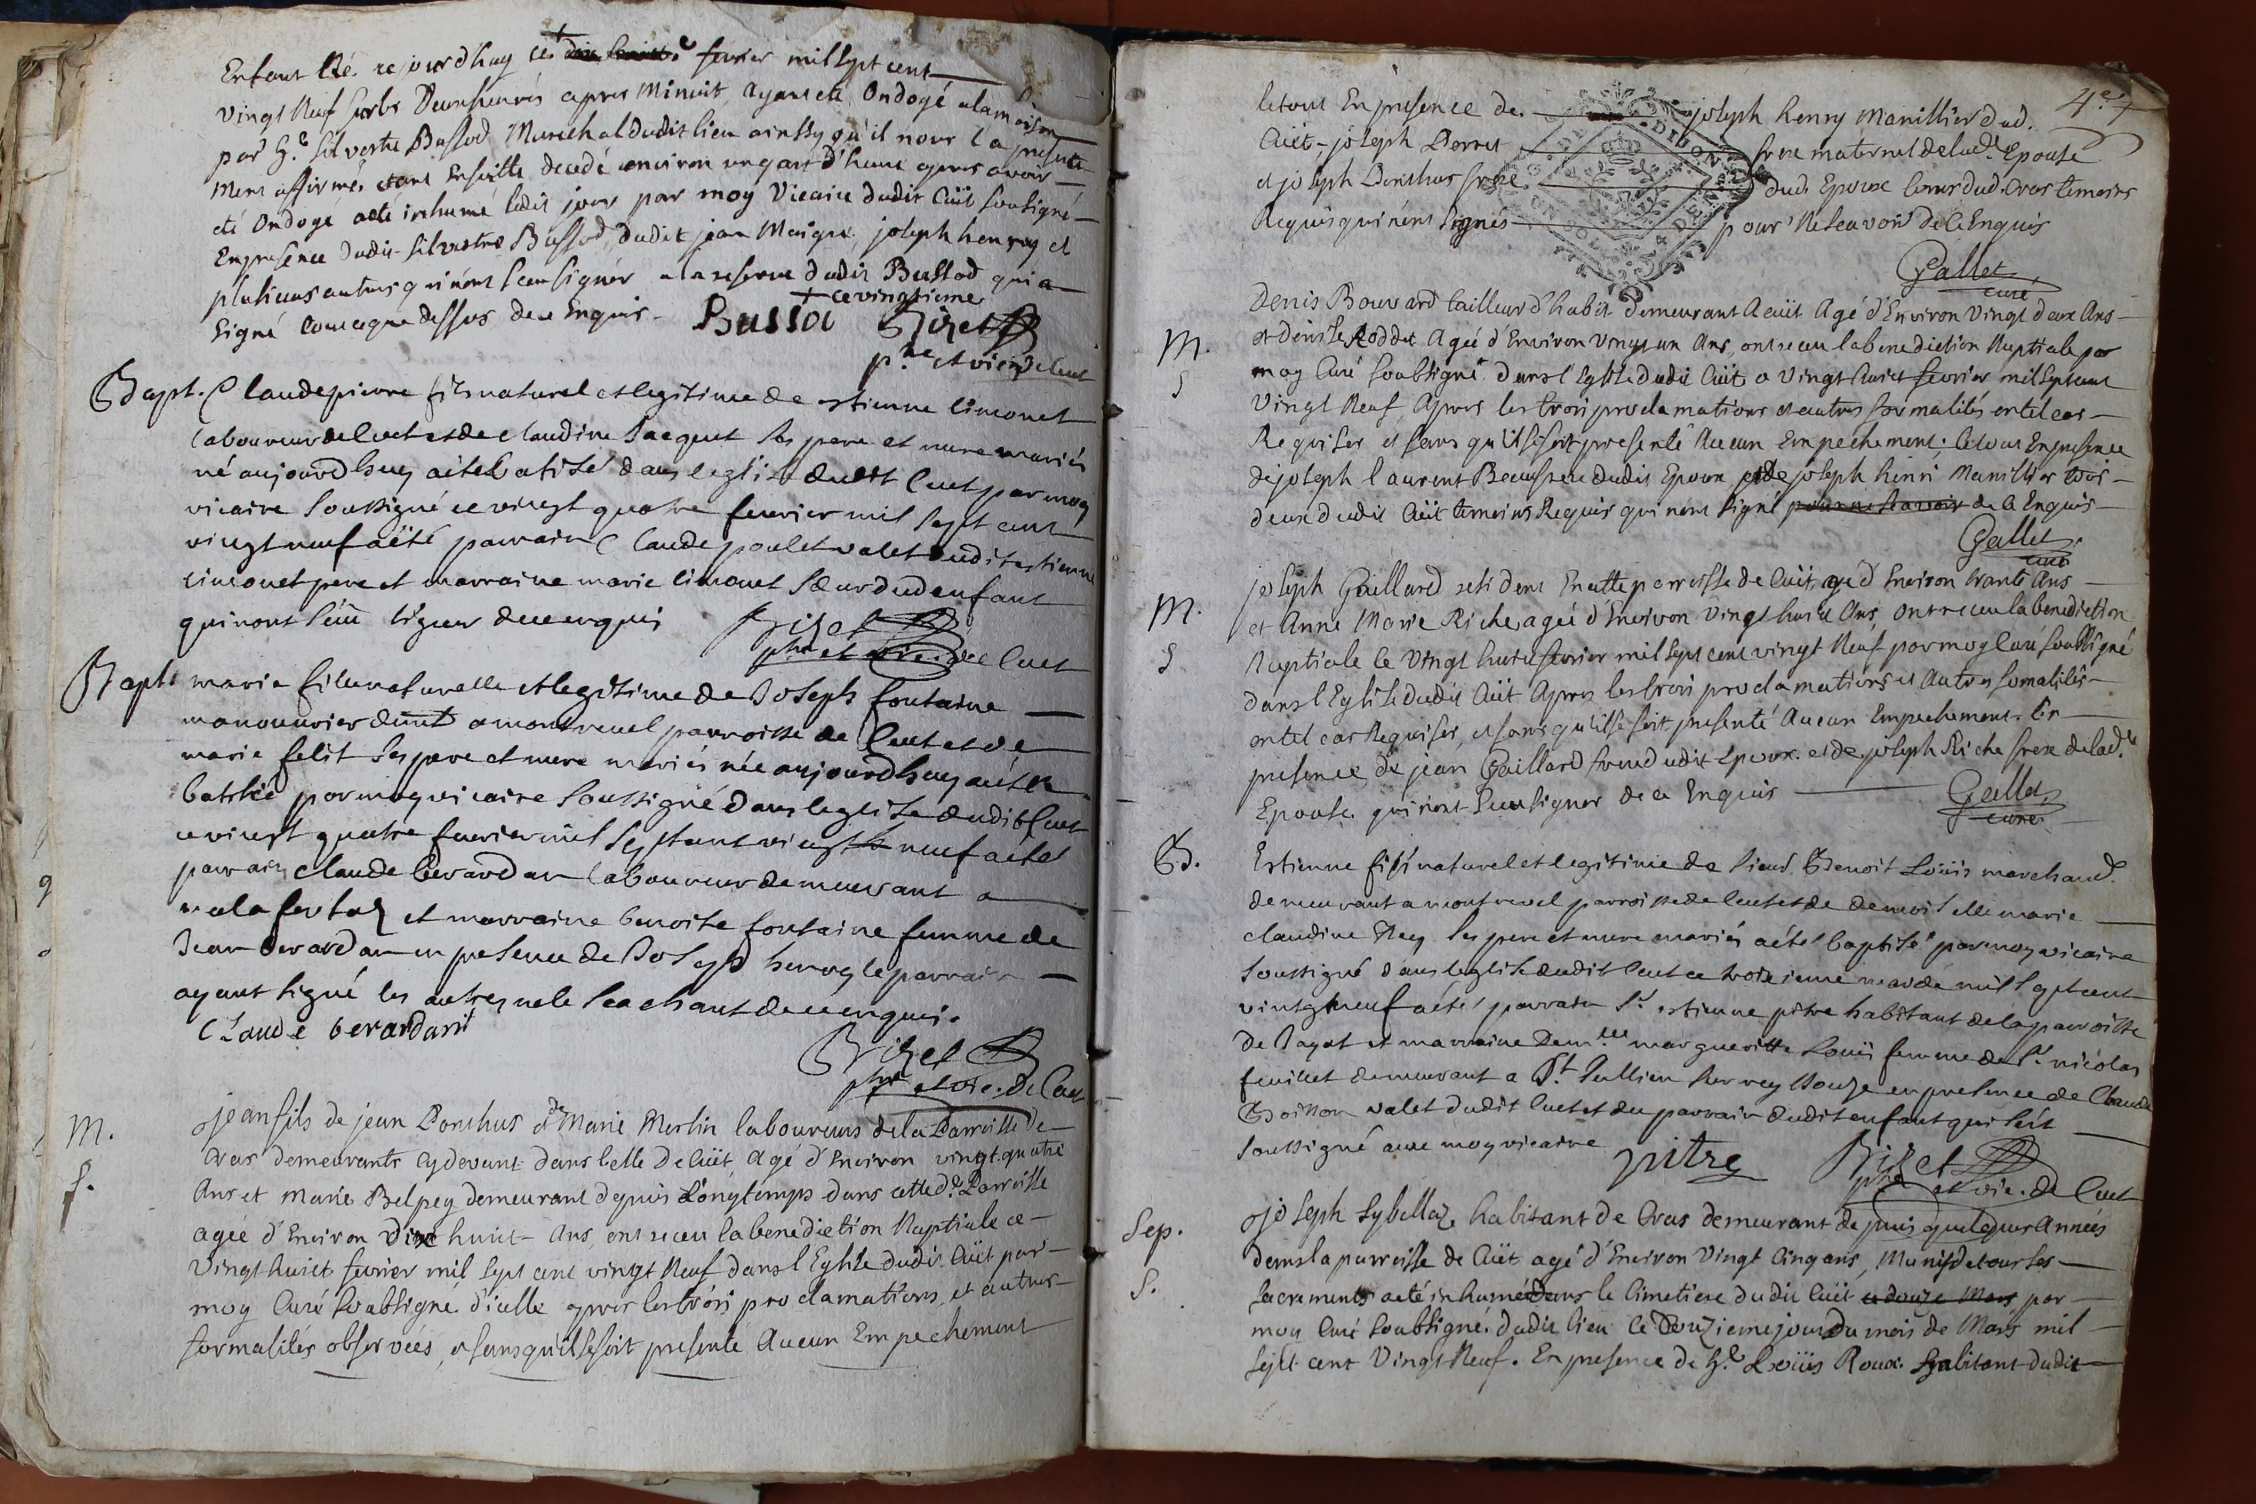 Enfant Né cejourdhuy ce + dix huict e fevrier mil sept cent
Vingt Neuf sur les Deux heures apres Minuit, Ayant eté Ondogé a la maison
par h.e Silvestre Bussod Marechal dudit lieu ainssy qu'il nous l a presente
ment affirmés etant Ensuitte decedé environ un gart d'heure apres avoir
eté Ondogé a eté inhumé ledit jour par moy Vicaire dudit Cüit sousigné
En presence dudit Silvestre Bussod, dudit jean Maigre, joseph henry et
plusieurs autres qui n'ont sceu signér a la reserve dudit Bussod qui a
signé comme que dessus de ce Enquis. + ce vingtieme
Bussod Bizet
p.tre et vic. de Cuet
Bapt. Claude pierre fils naturel et legitime de estienne limonet
laboureur de Cuet et de claudine Jacquet ses pere et mere mariés
né aujourdhuy a été batisé dans leglise dudit Cuet par moy
vicaire soussigné ce vingt quatre fevrier mil sept cent
vingt neuf a été parrain Claude poulet valet dudit estienne
limonet pere et marraine marie limonet sœur dud enfant
qui n ont sceu signer de ce enquis
Bizet
ptre et vic. de Cuet
Bapt. marie fille naturelle et legitime de Joseph fontaine
manouvrier dem.t a montrevel parroisse de Cuet et de
marie felit ses pere et mere mariés née aujourdhuy a été
batisée par moy vicaire soussigné dans leglise dudit Cuet
ce vingt quatre fevrier mil sept cent vingt neuf a été
parrain claude berardan laboureur demeurant a
et marraine benoite fontaine femme de
Jean berardan en presence de Joseph henry le parrain
ayant signé les autres ne le sachant de ce enquis.
Claude berardant
Bizet
ptre et vic. de Cuet
M. jean fils de jean Ponthus et de Marie Merlin laboureurs de la Parroisse de
Cras demeurants cy devant dans celle de Cüit, agé d'Environ vingt quatre
S. Ans et Marie Belpey demeurant depuis Longtemps dans cette d.e Parroisse
agée d'Environ Dix huict Ans, ont receu la benediction Nuptiale ce
Vingt huict fevrier mil sept cent vingt Neuf dans l Eglise dudit Cüit par
moy Curé soubsigné d'icelle apres les trois proclamations, et autres
formalités observées, et sans qu'il se soit presenté Aucun Empechement
4.e
le tout En presence de joseph henry Manillier dud.
Cüit, joseph Perret frere maternel de lad.e Epouse
et joseph Ponthus frere dud. Epoux tous dud. Cras temoins
Requis qui n'ont signés pour Ne Scavoir de ce Enquis
Gallet
curé
M. Denis Bouvard tailleur d'habit demeurant a Cüit Agé d'Environ vingt deux Ans
et denise Roddet Agée d'Environ vingt un Ans, ont receu la benediction Nuptiale par
S moy Curé soubsigné dans l Eglise dudit Cüit ce Vingt huict fevrier mil sept cent
Vingt Neuf, Apres les trois proclamations et autres formalités en tel cas
Requises et sans qu'il se soit presenté Aucun Empechement; le tout En presence
de joseph laurent Beaufrere dudit Epoux et de joseph henri Manillier tous
deux dudit Cüit temoins Requis qui n'ont signé pour ne scavoir de ce Enquis
Gallet
curé
M. joseph Gaillard resident En cette parroisse de Cüit, agé d'Environ trante Ans
et Anne Marie Riche, agée d'Environ Vingt huict Ans, ont receu la benediction
S Nuptiale le Vingt huict fevrier mil sept cent vingt Neuf par moy Curé soussigné
dans l Eglise dudit Cüit Apres les trois proclamations et Autres formalités
en tel cas Requises, et sans qu'il se soit presenté Aucun Empechement. En
presence, de jean Gaillard frere dudit Epoux. et de joseph Riche frere de lad.e
Epouse qui n'ont sceu signer de ce Enquis
Gallet
curé
B. Estienne fils naturel et legitime de sieur Benoit Loüis marchand.
demeurant a montrevel parroisse de Cuet et de demoiselle marie
claudine Ney ses pere et mere mariés a été baptisé par moy vicaire
soussigné dans leglise dudit Cuet ce troisieme mars de mil sept cent
vingt neuf a été parrain S.r estienne pitre habitant de la parroisse
de Jayat et marraine Dem.lle margueritte Louïs femme de S.r nicolas
feuillet demeurant a S.t Jullien sur reyssouze en presence de Claude
Boisson valet dudit Cuet et du parrain dudit enfant qui s'est
soussigné avec moy vicaire
pitre Bizet
ptre et vic. de Cuet
Sep. joseph Sybellaz habitant de Cras demeurant depuis quelques Années
dans la parroisse de Cüit agé d'Environ Vingt Cinq ans, Munis de tous les
S. sacrements a eté inhumé dans le Cimetiere dudit Cüit ce douze Mars par
moy Curé soubsigné. dudit lieu Ce Douzieme jour du mois de Mars mil
sept cent Vingt Neuf. En presence de h.e Loüis Roux. habitant dudit